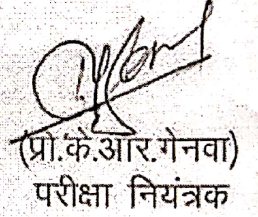 (प्रो.के.आर.गेनवा)
परीक्षा नियंत्रक